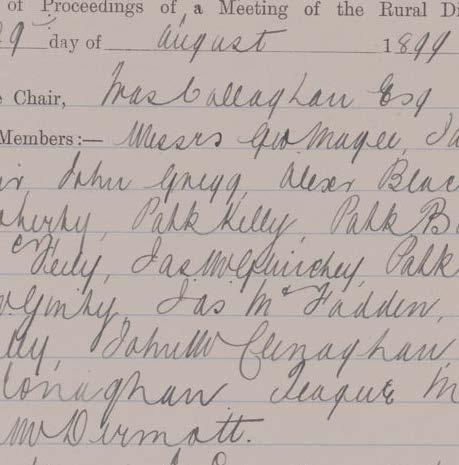 of Proceedings of a Meeting of the Rural Di
29 day of August 1899
e Chair, Callaghan Esq
Members:— Messrs Geo Magee, Ja
ir, John Gregg, Alexr Blac
oherty, Patk Kelly, Patk B
Feely, Jas McGuinchey, Patk
McGinty, Jas McFadden,
lly, John McClenaghan,
Conaghan Teague M
McDermott.